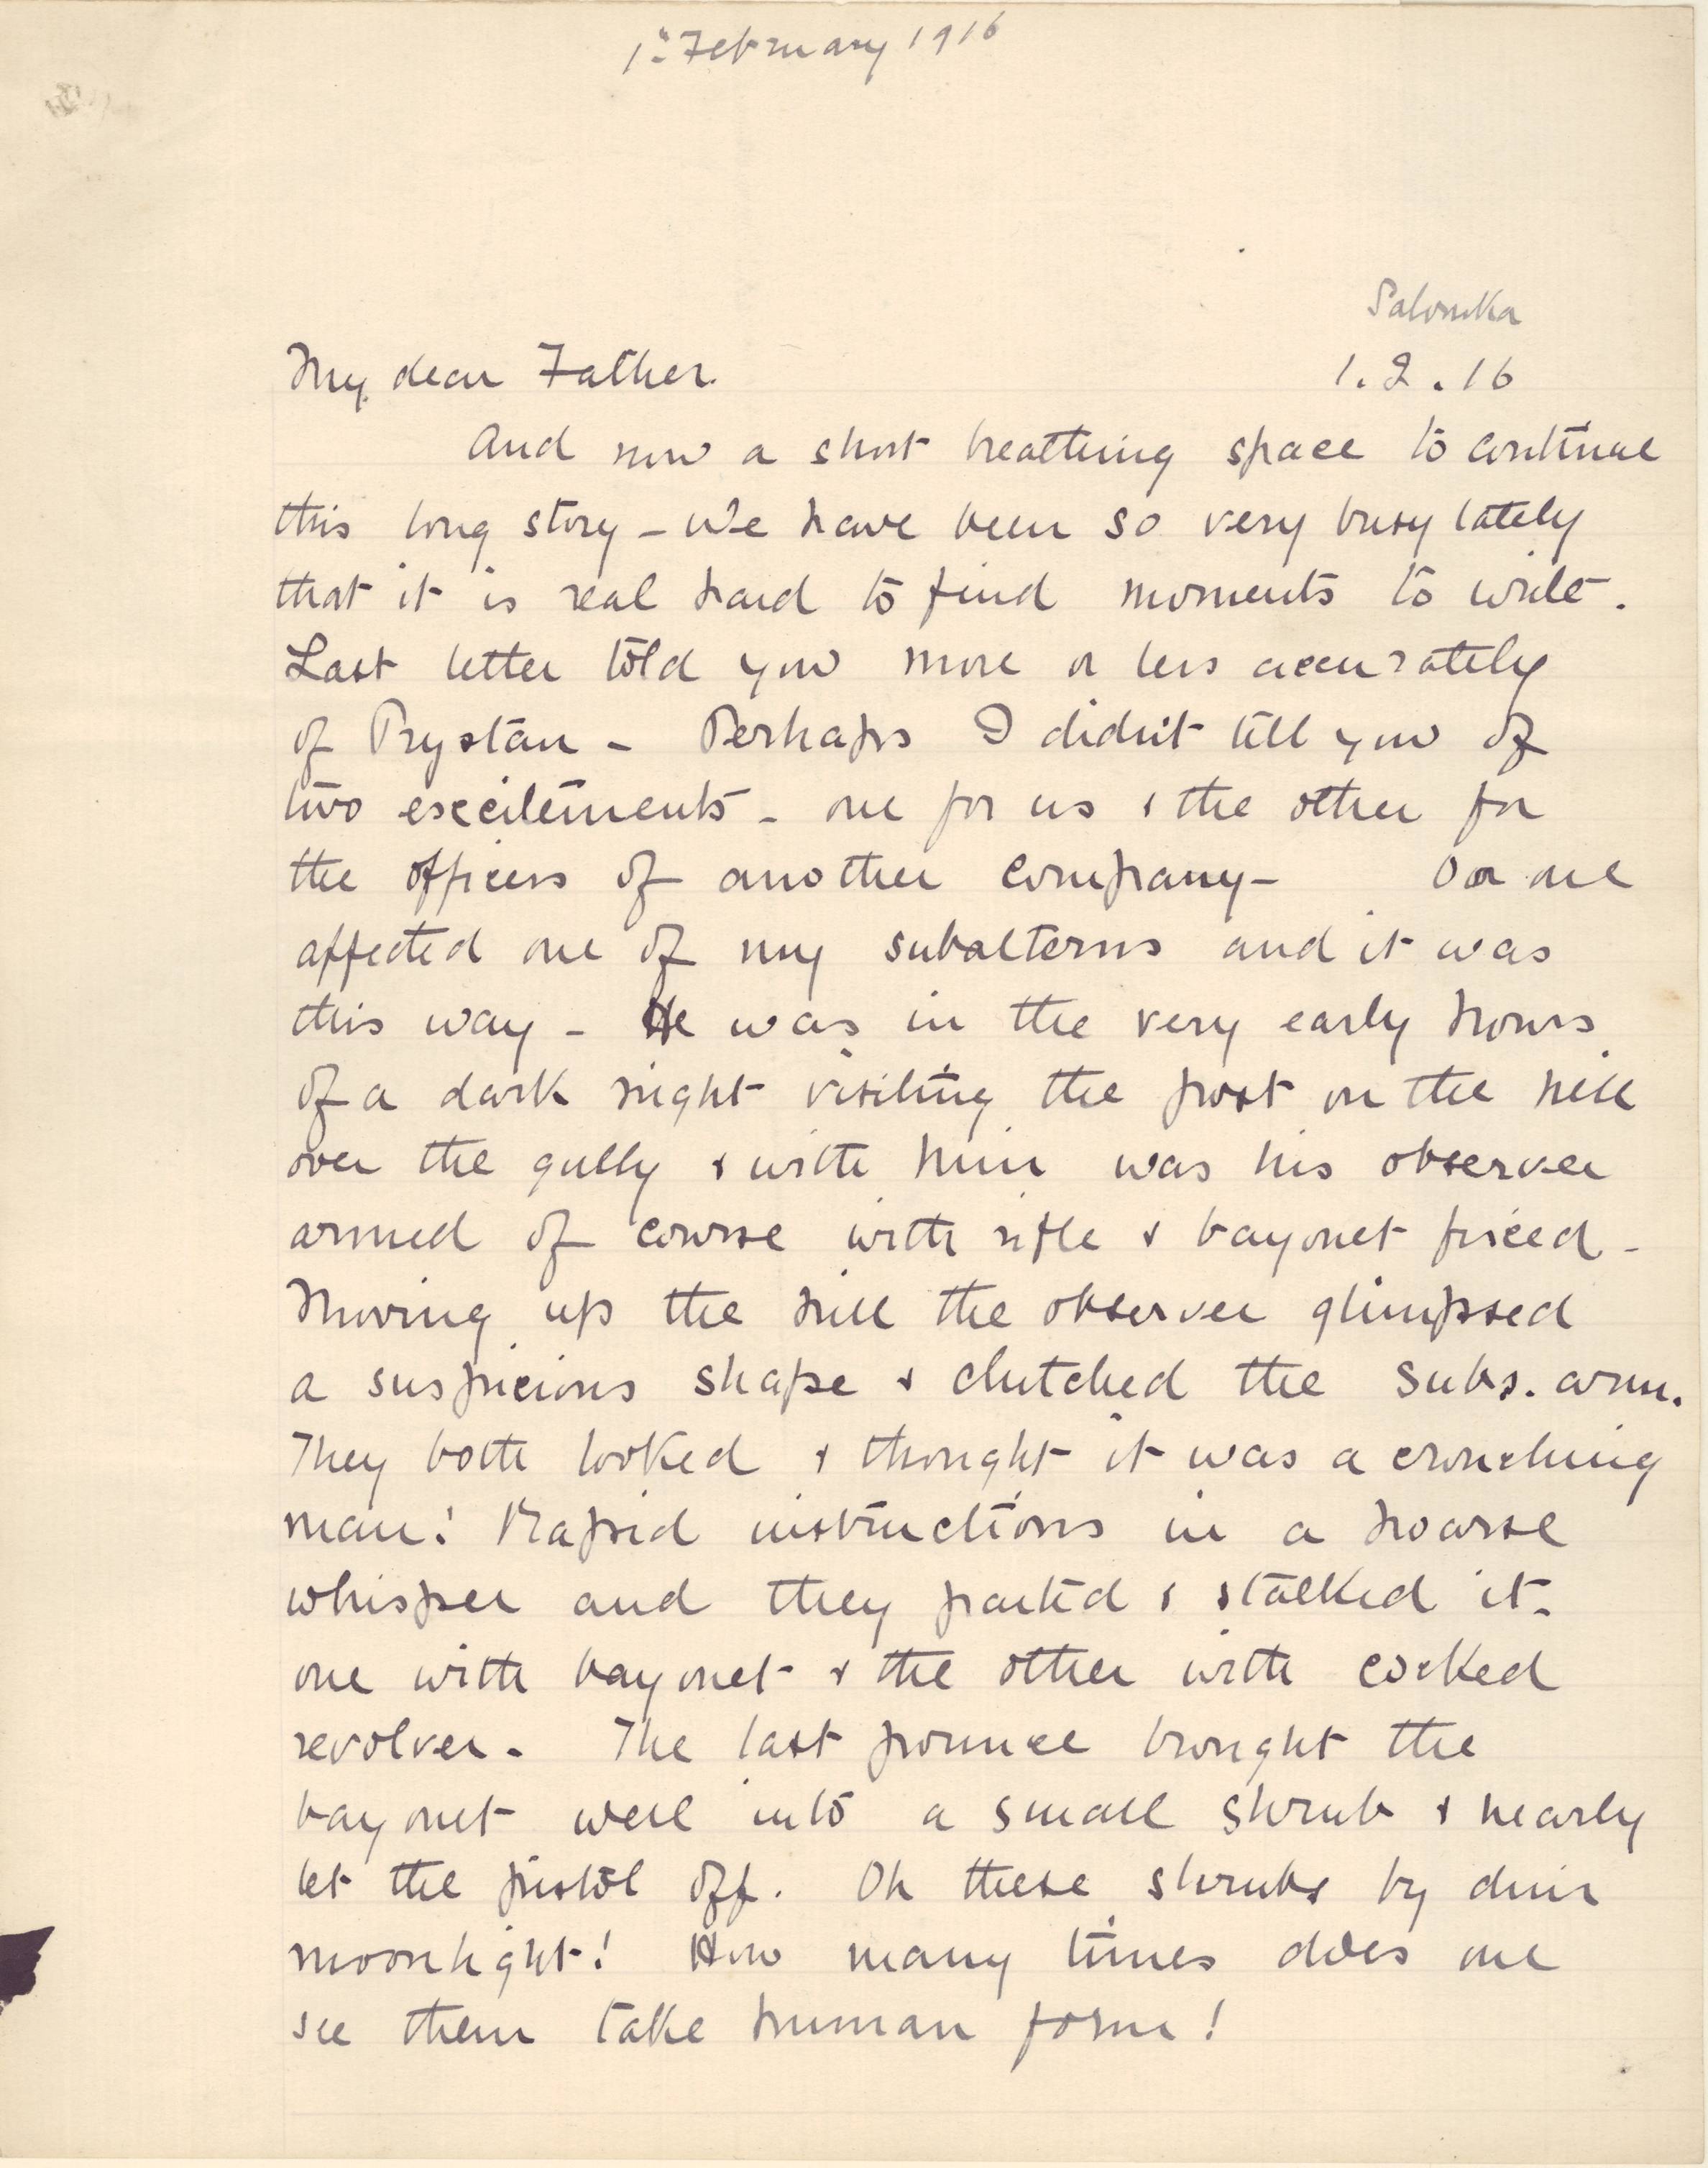 1st February 1916
Salonika
My dear Father.
1.2.16
And now a short breathing space to continue
this long story - We have been so very busy lately
that it is real hard to find moments to write.
Last letter told you more or less accurately
of Prystan - Perhaps I didn't tell you of
two excitements - one for us & the other for
the officers of another company - Our one
affected one of my subalterns and it was
this way - He was in the very early hours
of a dark night visiting the post on the hill
over the gully & with him was his observer
armed of course with rifle & bayonet fixed -
Moving up the hill the observer glimpsed
a suspicious shape & clutched the subs. arm.
They both looked & thought it was a crouching
man! Rapid instructions in a hoarse
whisper and they parted & stalked it -
one with bayonet & the other with cocked
revolver - The last pounce brought the
bayonet well into a small shrub & nearly
let the pistol off. Oh these shrubs by dim
moonlight! How many times does one
see them take human form!